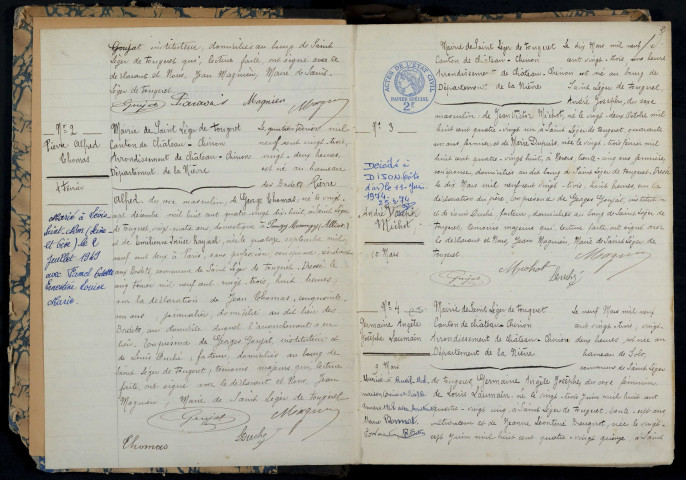 Goujat, instituteur, domiciliés au bourg de Saint
Léger de Fougeret qui, lecture faite, ont signé avec le
déclarant et Nous, Jean Magnien, Maire de Saint
Léger de Fougeret
Goujat Magnien
N° 2
Pierre Alfred
Thomas
4 Février
Marié à Livry
le 2
Juillet 1949
avec
Ernestine Louise
Marie
Mairie de Saint Léger de Fougeret
Canton de Château-Chinon
Arrondissement de Château-Chinon
Département de la Nièvre
Le quatre Février mil
neuf cent vingt-trois,
deux heures,
est né au hameau
des Bodets Pierre
Alfred du sexe masculin, de George Thomas, né le vingt
décembre mil huit cent quatre vingt dix huit à Saint Léger
de Fougeret,
et de Emilienne Louise née le quatre septembre mil
neuf cent deux à Paris, sans profession, son épouse,
aux Bodets, commune de Saint Léger de Fougeret. Dressé le
cinq Février mil neuf cent vingt-trois, huit heures,
sur la déclaration de Jean Thomas, cinquante
ans, journalier, domicilié au dit lieu des
Bodets, au domicile duquel l'accouchement a eu
lieu. En présence de Georges Goujat, instituteur et
de Louis Duché, facteur, domiciliés au bourg de
Saint Léger de Fougeret, témoins majeurs qui, lecture
faite ont signé avec le déclarant et Nous, Jean
Magnien, Maire de Saint Léger de Fougeret
Goujat Magnien
Thomas Duché
ACTES DE L'ÉTAT CIVIL
PAPIER SPÉCIAL
2F
N° 3
Décédé à
DIJON
le 11 Juin
1974
André Joseph
Michot
10 Mars
Mairie de Saint Léger de Fougeret
Canton de Château-Chinon
Arrondissement de Château-Chinon
Département de la Nièvre
Le dix Mars mil neuf
cent vingt-trois, une heure
est né au bourg de
Saint Léger de Fougeret,
André Joseph, du sexe
masculin de Jean Victor Michot, né le vingt deux Octobre mil
huit cent quatre-vingt un à Saint Léger de Fougeret,
et de Marie Dupuis, née le vingt trois février mil
huit cent quatre-vingt huit,
son épouse, domiciliés au dit bourg de Saint Léger de Fougeret. Dressé
le dix Mars mil neuf cent vingt-trois, huit heures sur la
déclaration du père. En présence de Georges Goujat, instituteur
et de Louis Duché, facteur, domiciliés au bourg de Saint Léger de
Fougeret, témoins majeurs qui, lecture faite, ont signé avec
le déclarant et Nous, Jean Magnien, Maire de Saint Léger de
Fougeret
Michot Magnien
Goujat Duché
N° 4
Germaine Angèle
Josèphe Laumain
9 Mars
Mairie de Saint Léger de Fougeret
Canton de Château-Chinon
Arrondissement de Château-Chinon
Département de la Nièvre
Le neuf Mars mil neuf
cent vingt-trois, vingt-
deux heures, est née au
hameau de
commune de Saint Léger
de Fougeret, Germaine Angèle Josèphe, du sexe féminin
de Louis Laumain, né le vingt trois Juin mil huit cent
quatre-vingt
et de Jeanne Léontine née le vingt-
sept Juin mil huit cent quatre-vingt quinze à Saint